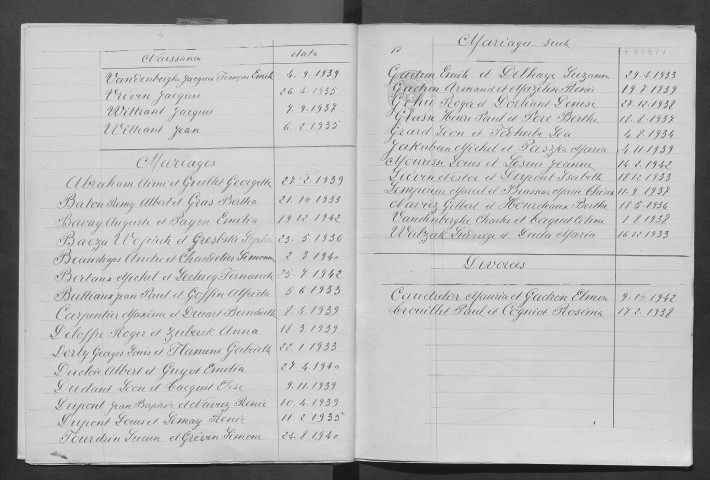 Naissance date
Vandenberghe Jacques François Emile 4.9.1939
Vréven Jacques 26.4.1935
Willrant Jacques 7.9.1937
Willrant Jean 6.2.1935
Mariages
Abraham Aimé et Guillet Georgette 27.2.1939
Baton Remy Albert et Gras Bertha 21.10.1933
Bavay Auguste et Payen Emélia 19.12.1942
Bacza Wojciech et 23.5.1936
Beaudoges Andre et Chandelier Simonne 2.3.1940
Bertaux Michel et Leclercq Fernande 25.7.1942
Buthaux Jean Paul et Goffin Alfréda 5.6.1933
Carpentier Maxime et Duart Bénédicte 8.4.1939
Deloffre Roger et Zuberek Anna 18.3.1939
Derly Georges Louis et Flament Gabrielle 22.1.1933
Duclois Albert et Guyot Emélia 27.4.1940
Dudant Léon et Cacquet Elise 9.11.1939
Dupont Jean Baptiste et Naviez Renée 10.4.1939
Dupont Louis et Lemay Renée 11.2.1935
Tourdrin Lucien et Gréven Simone 24.8.1940
Mariages suite
Gadrin Emile et Delhaye Suzanne 29.4.1933
Gadron Armand et Renée 19.7.1939
Roger et Denise 27.11.1938
Henri Paul et Pore Berthe 18.8.1937
Grard Léon et Léa 4.8.1934
Jakuban Michel et Paszka Maria 4.11.1939
Mouresse Louis et Jeanne 14.2.1942
Liévin Nestor et Dupont Isabelle 18.12.1933
Marcel et Maria 11.9.1937
Naviez Gilbert et Hourdeaux Berthe 18.5.1936
Vandenberghe Charles et Cacquet Céline 1.8.1938
Walzak et Duda Maria 16.12.1933
Divorces
Caudrelier Maurice et Gadron Elmire 9.10.1942
Crouillet Paul et Cogniot Roséma 17.2.1938